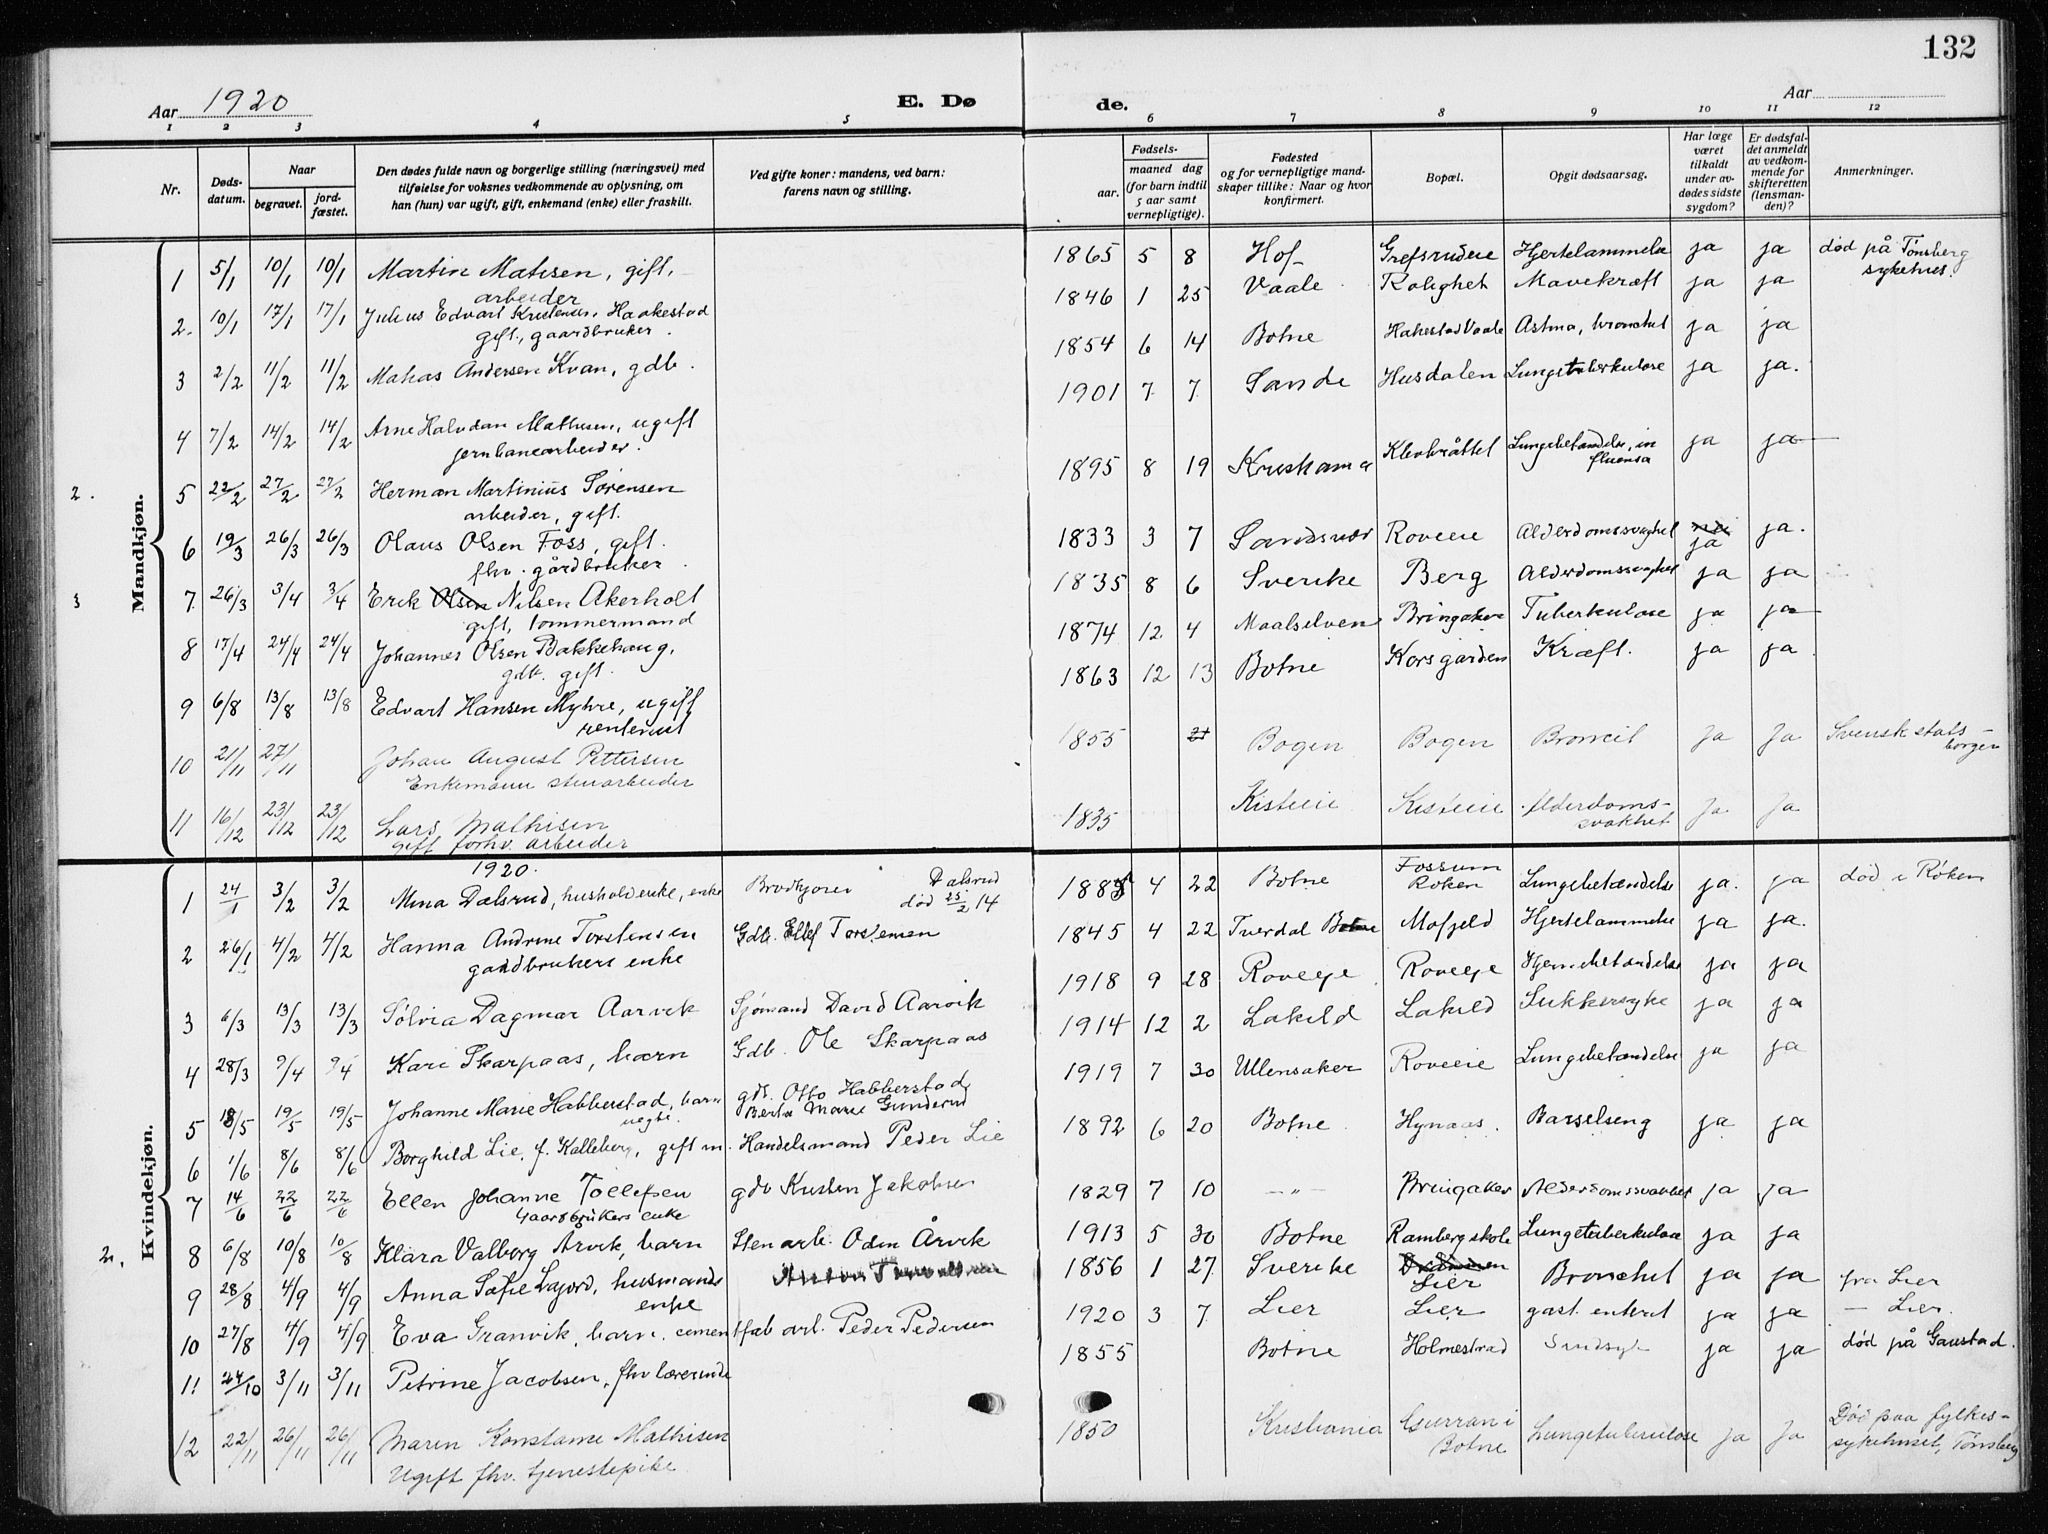 132
Aar 1920 E. Dø de. Aar
1 2 3 4 5 6 7 8 9 10 11 12
Nr. Døds-datum. Naar begravet. jord-fæstet. Den dødes fulde navn og borgerlige stilling (næringsvei) med tilføielse for voksnes vedkommende av oplysning, om han (hun) var ugift, gift, enkemand (enke) eller fraskilt. Ved gifte koner: mandens, ved barn: farens navn og stilling. Fødsels- aar. maaned dag (for barn indtil 5 aar samt vernepligtige). Fødested og for vernepligtige mand-skaper tillike: Naar og hvor konfirmert. Bopæl. Opgit dødsaarsag. Har læge været tilkaldt under av-dødes sidste sygdom? Er dødsfal-det anmeldt av vedkom-mende for skifteretten (lensman-den)? Anmerkninger.
Mandkjøn.
1 5/1 10/1 10/1 Martin Matisen, gift, arbeider 1865 5 8 Hof Grefsrudeie Hjertelammelse ja ja død på Tønsberg sykehus.
2. 10/1 17/1 17/1 Julius Edvart Kristensen, Haakestad gift, gaardbruker. 1846 1 25 Vaale Rolighet Mavekræft ja ja
3 2/2 11/2 11/2 Matias Andersen Kvan, gdb. 1854 6 14 Botne Hakestad Vaale Astma, bronchit ja ja
4 7/2 14/2 14/2 Arne Halvdan Mathisen, ugift jernbanearbeider. 1901 7 7 Sande Husdalen Lungetuberkulose ja ja.
2. 5 22/2 27/2 27/2 Herman Martinius Sørensen arbeider, gift. 1895 8 19 Kristiania Klevbråttet Lungebetændelse, in fluensa ja ja
6 19/3 26/3 26/3 Olaus Olsen Foss, gift. fhv. gårdbruker. 1833 3 7 Sandsvær Roveeie Alderdomssvaghet ja ja.
3 7 26/3 3/4 3/4 Erik Olsen Nilsen Akerholt gift, tømmermand 1835 8 6 Sverike Berg Alderdomssvaghet ja ja
8 17/4 24/4 24/4 Johannes Olsen Bakkehaug, gdb. gift. 1874 12 4 Maalselven Bringaker Tuberkulose ja ja
9 6/8 13/8 13/8 Edvart Hansen Myhre, ugift rentenist 1863 12 13 Botne Korsgården Kræft. ja ja
10 21/11 27/11 Johan August Pettersen Enkemann stenarbeider 1855 21 Bogen Bogen Broncit Ja Ja Svensk stats-borger
11 16/12 23/12 23/12 Lars Mathisen gift forhv. arbeider 1835 Kisteeie Kisteeie Alderdoms-svakhet Ja Ja
1920.
Kvindekjøn.
1 24/1 3/2 3/2 Mina Dalsrud, husholderske, enke Brødkjører Dalsrud død 25/2 14 1885 4 22 Botne Fossum Røken Lungebetændelse ja. ja død i Røken
2 26/1 4/2 4/2 Hanna Andrine Torstensen gaardbrukers enke Gdb. Ellef Torstensen 1845 4 22 Tverdal Botne Mofjeld Hjertelammelse ja ja.
3 6/3 13/3 13/3 Sølvia Dagmar Aarvik Sjømand David Aarvik 1918 9 28 Roveeje Roveeje Hjernebetændelse ja ja
4 28/3 9/4 9/4 Kari Skarpaas, barn Gdb. Ole Skarpaas 1914 12 2 Lakild Lakild Sukkersyke ja ja
5 18/5 19/5 19/5 Johanne Marie Habberstad, barn uegte. gdb. Otto Habberstad Berta Marie Gunderud 1919 7 30 Ullensaker Roveeie Lungebetændelse ja ja
6 1/6 8/6 8/6 Borghild Lie, f. Kalleberg, gift m. Handelsmand Peder Lie 1892 6 20 Botne Hynaas. Barselseng ja ja
7 14/6 22/6 22/6 Ellen Johanne Tollefsen gaardbrukers enke gdb Kristen Jakobsen 1829 7 10 —"— Bringaker Alderdomssvakhet ja ja
2. 8 6/8 10/8 10/8 Klara Valborg Arvik, barn Stenarb. Odin Årvik 1913 5 30 Botne Ramberg skole Lungetuberkulose ja ja
9 28/8 4/9 4/9 Anna Sofie Lajord, husmands enke 1856 1 27 Sverike Drammen Lier Bronchit ja ja fra Lier
10 27/8 4/9 4/9 Eva Granvik, barn. cementfab arb. Peder Pedersen 1920 3 7 Lier Lier gast. enterit ja ja — Lier.
11 24/10 3/11 3/11 Petrine Jacobsen, fhv lærerinde 1855 Botne Holmestrad Sindsyk ja ja død på Gaustad.
12 22/11 26/11 26/11 Maren Konstanse Mathisen Ugift fhv. tjenestepike 1850 Kristiania Gurran i Botne Lungetuberkulose ja Ja Død paa fylkes-sykehuset, Tønsberg